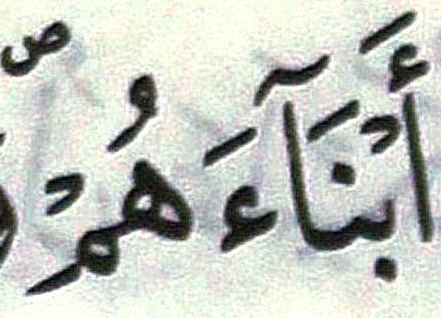 أَبْنَآءَهُمْ ۖ